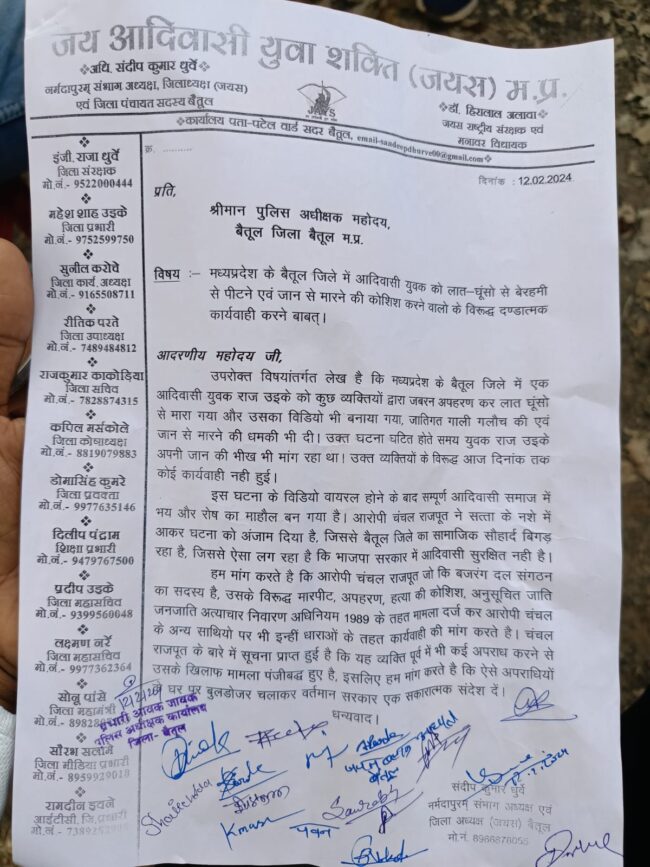 जय आदिवासी युवा शक्ति (जयस) म.प्र.
अधि. संदीप कुमार धुर्वे
नर्मदापुरम् संभाग अध्यक्ष, जिलाध्यक्ष (जयस)
एवं जिला पंचायत सदस्य बैतूल
JAYS
डॉ. हिरालाल अलावा
जयस राष्ट्रीय संरक्षक एवं
मनावर विधायक
कार्यालय पता-पटेल वार्ड सदर बैतूल, email-sandeepdhurve00@gmail.com
क्र. ..........
दिनांक : 12.02.2024
इंजी. राजा धुर्वे
जिला संरक्षक
मो.नं.- 9522000444
महेश शाह उइके
जिला प्रभारी
मो.नं.- 9752599750
सुनील करोचे
जिला कार्य. अध्यक्ष
मो.नं.- 9165508711
रीतिक परते
जिला उपाध्यक्ष
मो.नं- 7489484812
राजकुमार काकोड़िया
जिला सचिव
मो.नं- 7828874315
कपिल मर्सकोले
जिला कोषाध्यक्ष
मो.नं.- 8819079883
डोमासिंह कुमरे
जिला प्रवक्ता
मो.नं- 9977635146
दिलीप पंद्राम
शिक्षा प्रभारी
मो.नं.- 9479767500
प्रदीप उइके
जिला महासचिव
मो.नं- 9399560048
लक्ष्मण नर्रे
जिला महासचिव
मो.नं- 9977362364
सोनू पांसे
जिला महामंत्री
मो.नं.-
सौरभ सलामे
जिला मीडिया प्रभारी
मो.नं- 8959929018
रामदीन इवने
आईटीसी. जि.प्रभारी
मो.नं.-
प्रति,
श्रीमान पुलिस अधीक्षक महोदय,
बैतूल जिला बैतूल म.प्र.
विषय :– मध्यप्रदेश के बैतूल जिले में आदिवासी युवक को लात–घूंसो से बेरहमी
से पीटने एवं जान से मारने की कोशिश करने वालो के विरूद्ध दण्डात्मक
कार्यवाही करने बाबत्।
आदरणीय महोदय जी,
उपरोक्त विषयांतर्गत लेख है कि मध्यप्रदेश के बैतूल जिले में एक
आदिवासी युवक राज उइके को कुछ व्यक्तियों द्वारा जबरन अपहरण कर लात घूंसो
से मारा गया और उसका विडियो भी बनाया गया, जातिगत गाली गलौच की एवं
जान से मारने की धमकी भी दी। उक्त घटना घटित होते समय युवक राज उइके
अपनी जान की भीख भी मांग रहा था। उक्त व्यक्तियों के विरूद्ध आज दिनांक तक
कोई कार्यवाही नही हुई।
इस घटना के विडियो वायरल होने के बाद सम्पूर्ण आदिवासी समाज में
भय और रोष का माहौल बन गया है। आरोपी चंचल राजपूत ने सत्ता के नशे में
आकर घटना को अंजाम दिया है, जिससे बैतूल जिले का सामाजिक सौहार्द बिगड़
रहा है, जिससे ऐसा लग रहा है कि भाजपा सरकार में आदिवासी सुरक्षित नही है।
हम मांग करते है कि आरोपी चंचल राजपूत जो कि बजरंग दल संगठन
का सदस्य है, उसके विरूद्ध मारपीट, अपहरण, हत्या की कोशिश, अनुसूचित जाति
जनजाति अत्याचार निवारण अधिनियम 1989 के तहत मामला दर्ज कर आरोपी चंचल
के अन्य साथियो पर भी इन्हीं धाराओं के तहत कार्यवाही की मांग करते है। चंचल
राजपूत के बारे में सूचना प्राप्त हुई है कि यह व्यक्ति पूर्व में भी कई अपराध करने से
उसके खिलाफ मामला पंजीबद्ध हुए है, इसलिए हम मांग करते है कि ऐसे अपराधियों
के घर पर बुलडोजर चलाकर वर्तमान सरकार एक सकारात्मक संदेश दें।
धन्यवाद।
प्रभारी आवक जावक
पुलिस अधीक्षक कार्यालय
जिला- बैतूल
Saurabh
पवन
संदीप कुमार धुर्वे
नर्मदापुरम् संभाग अध्यक्ष एवं
जिला अध्यक्ष (जयस) बैतूल
मो.नं. 8966876055